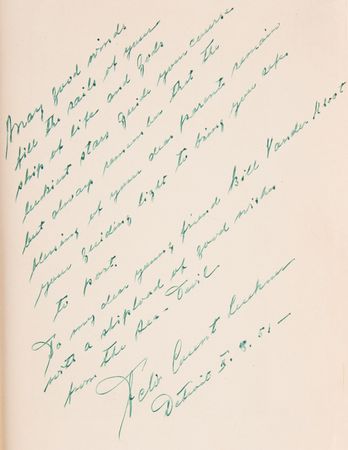 May good winds
fill the sails of your
ship of life and Gods
luckiest stars guide your course
but always remember that the
blessing of your dear parents remain
your guiding light to bring you safe
to port.
To my dear young friend Bill Vander
with a shipload of good wishes
from the Sea-Devil
Felix Count Luckner
Detroit 5. 9. 51 –